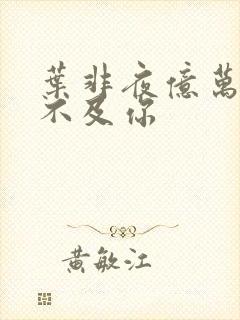 葉非夜億萬
不及你
黃敏江